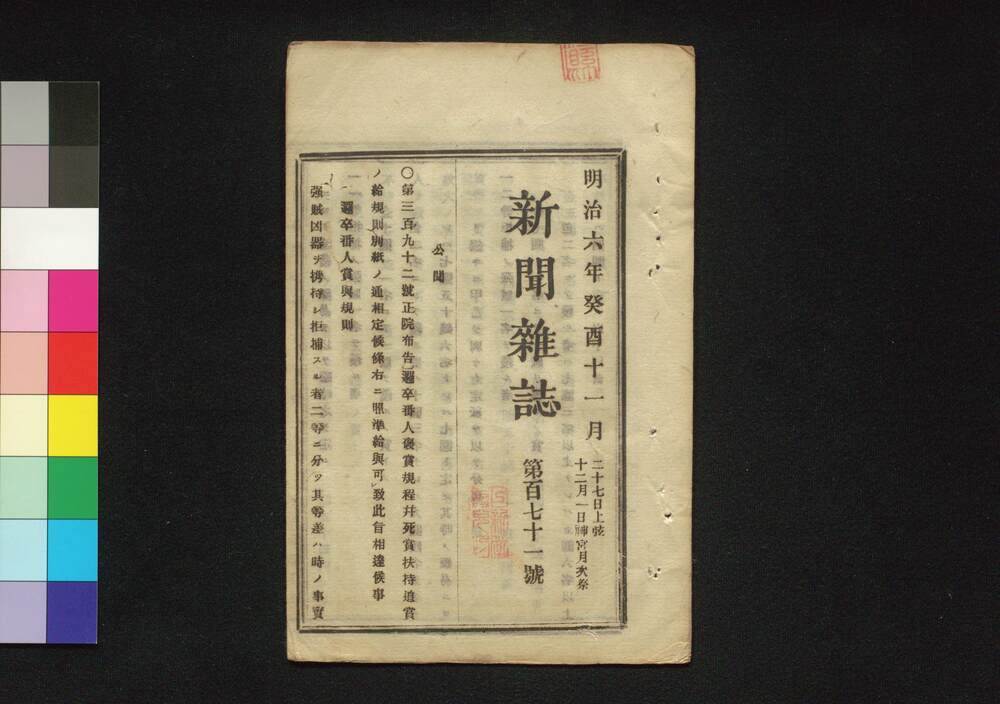 明治六年癸酉十一月
二十七日上弦
十二月一日神宮月次祭
新聞雜誌
第百七十一號
公聞
〇第三百九十二號正院布告邏卒番人褒賞規程幷死賞扶持追賞
ノ給規則別紙ノ通相定候條右ニ照準給與可致此旨相達候事
邏卒番人賞與規則
強賊凶器ヲ携持シ拒捕スル者二等ニ分ツ其等差ハ時ノ事實